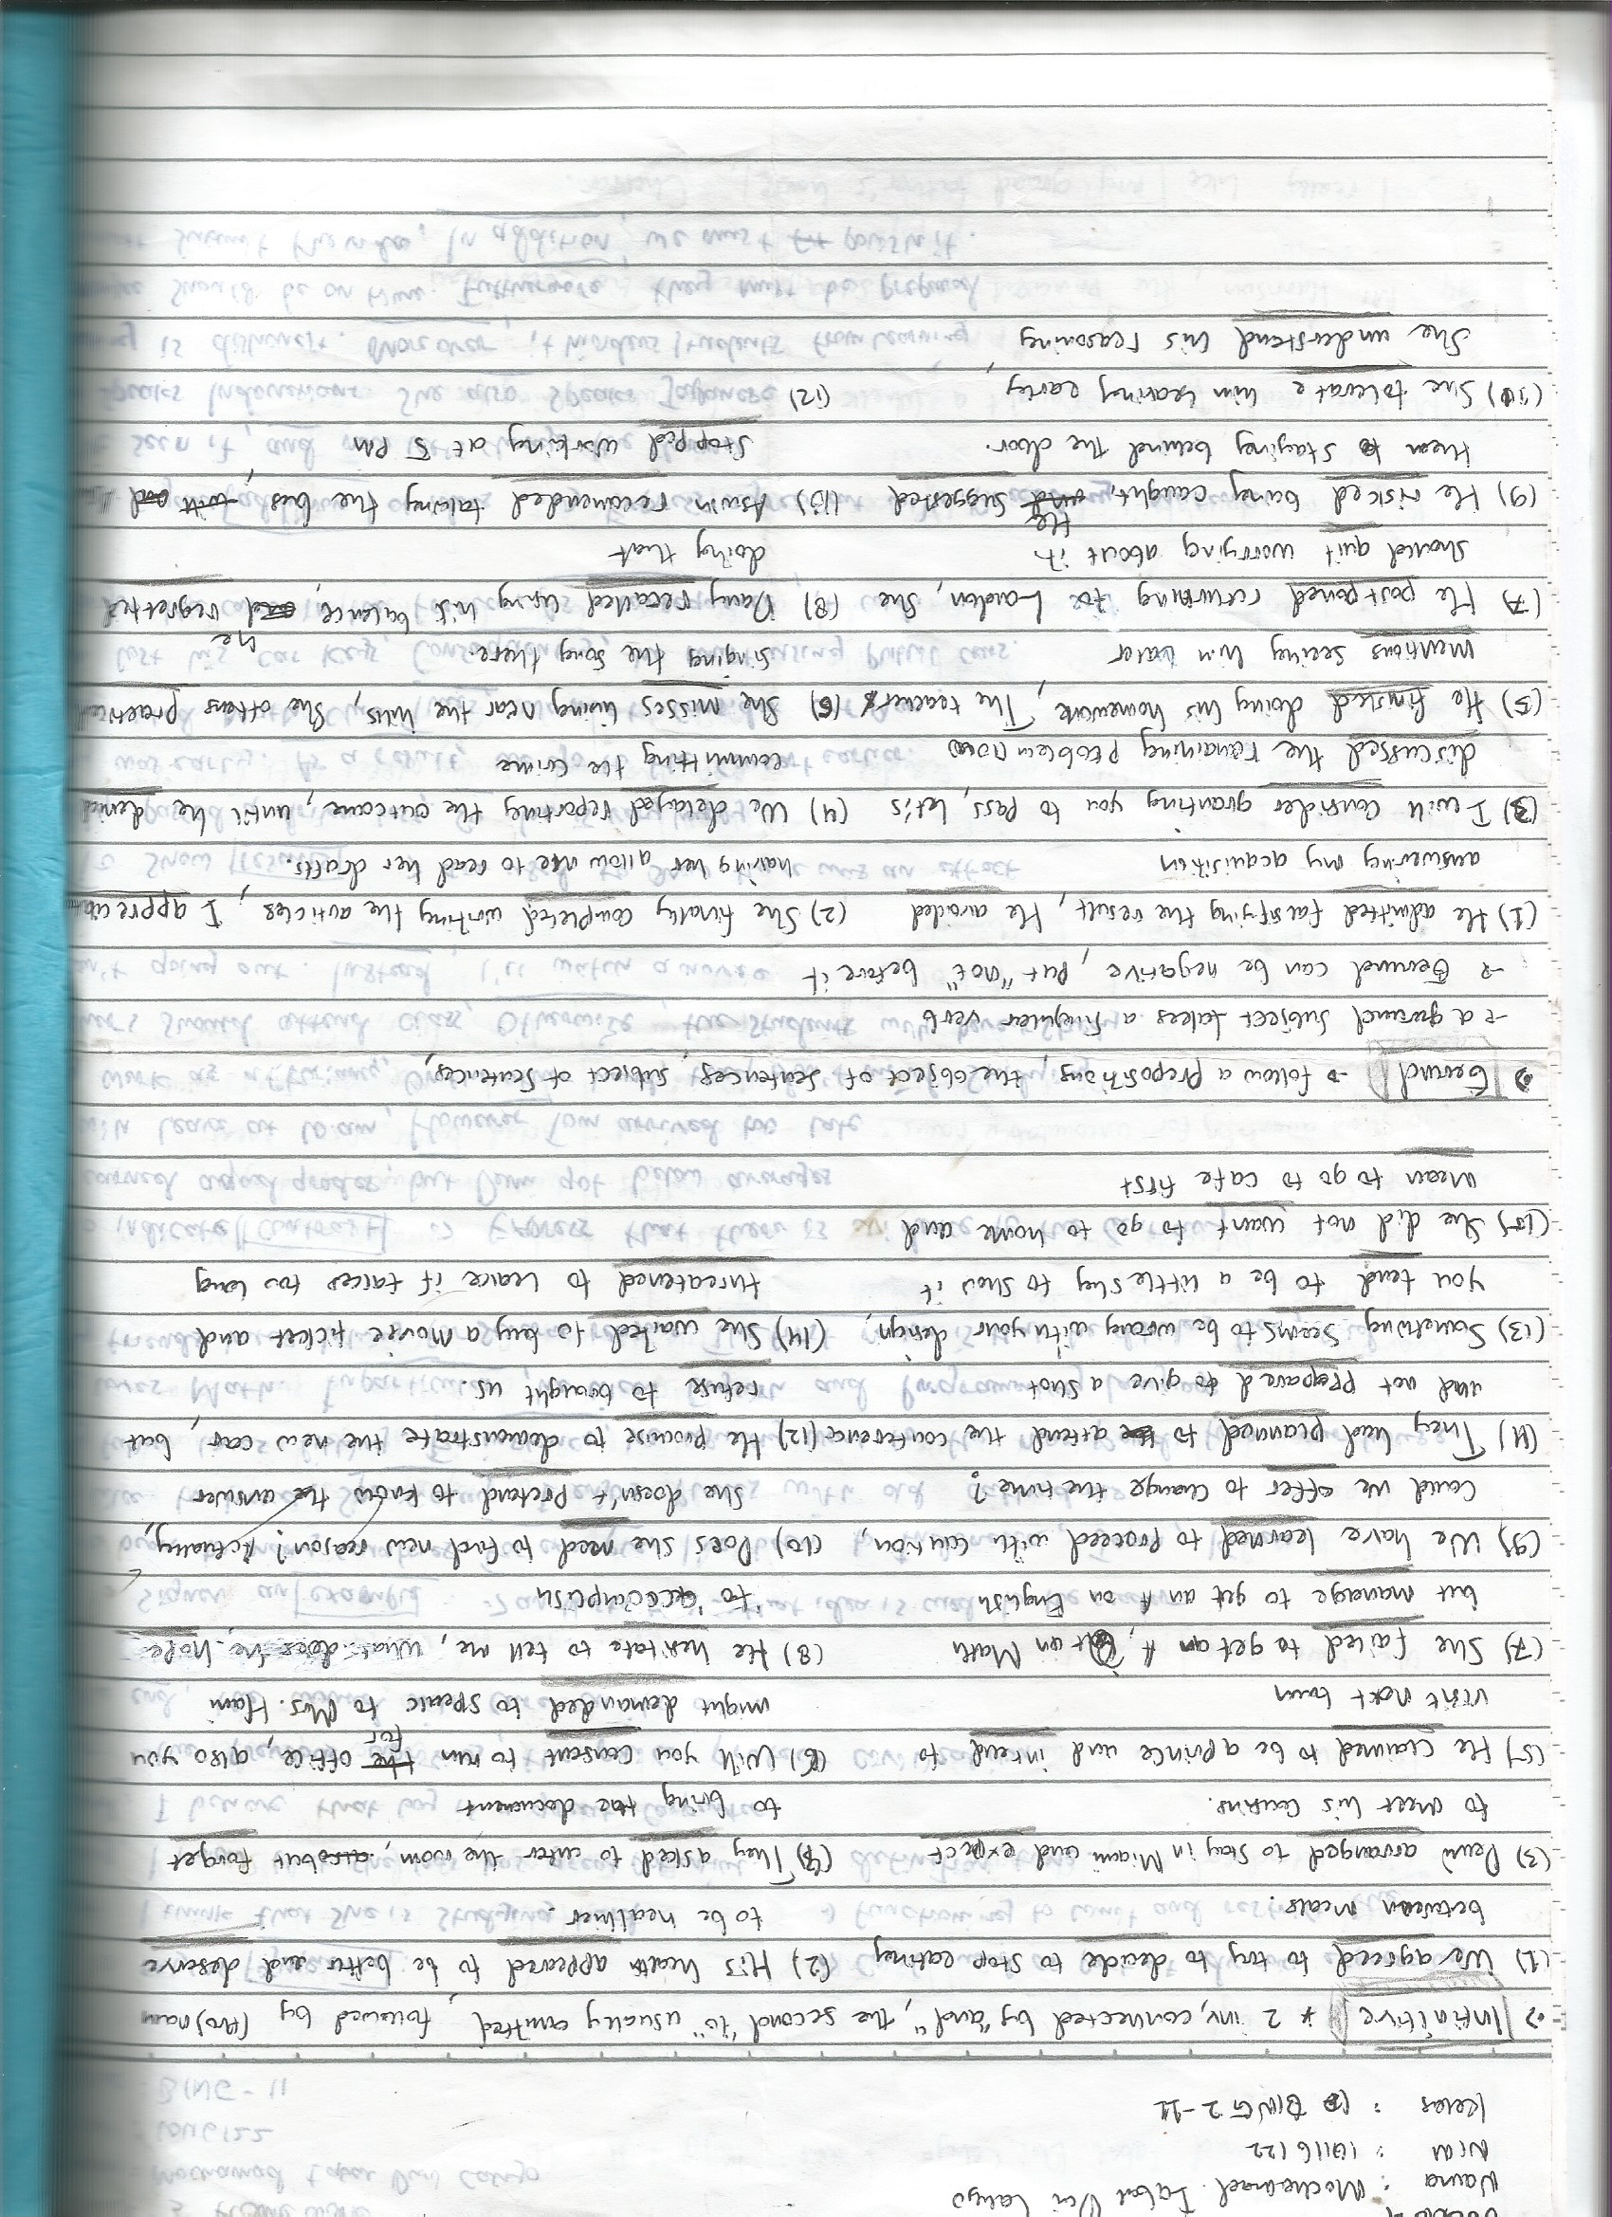 Nama : Mochamad Iqbal Dwi Cahyo
NIM : 10116122
Kelas : BING 2-11
Infinitive * 2 inv, connected by "and", the second "to" usually omitted, followed by
(1) We agreed to try to decide to stop eating
between meals.
(2) His health appeared to be better and deserve
to be healthier.
(3) Deni arranged to stay in Miami and expect
to meet his cousins.
(4) They asked to enter the room, but forget
to bring the document
(5) He claimed to be a prince and intend to
visit next town
(6) Will you consent to run for office, also you
might demanded to speak to Mrs. Ham
(7) She failed to get an A, on Math
but manage to get an A on English
(8) He hesitate to tell me, what does he hope
to accomplish
(9) We have learned to proceed with caution,
Could we offer to change the time?
(10) Does she need to find new reason? Actually,
She doesn't pretend to know the answer
(11) They had planned to attend the conference
and not prepared to give a shot
(12) He promise to demonstrate the new car, but
refuse to brought us.
(13) Something seems to be wrong with your design,
you tend to be a little shy to show it
(14) She waited to buy a movie ticket and
threatened to leave if takes too long
(15) She did not want to go to home and
mean to go to cafe first
Gerund → follow a prepositions, the object of sentences, subject of sentences,
→ a gerund subject takes a singular verb
→ Gerund can be negative, put "not" before it
(1) He admitted falsifying the result, He avoided
answering my acquisition
(2) She finally completed writing the articles, I appreciate
having her allow me to read her drafts.
(3) I will consider granting you to pass, let's
discussed the remaining problem now
(4) We delayed reporting the outcome, until he denied
committing the crime
(5) He finished doing his homework, The teacher
mentions seeing him later
(6) She misses living near the hills, she often practiced
singing the song there.
(7) He postponed returning to London, she
should quit worrying about it.
(8) Dany recalled using his balance, he regretted
doing that
(9) He risked being caught, He suggested
them staying behind the door.
(10) She tolerate him leaving early,
She understand his reasoning
Aswin recomended taking the bus,
stopped working at 5 PM
(12)